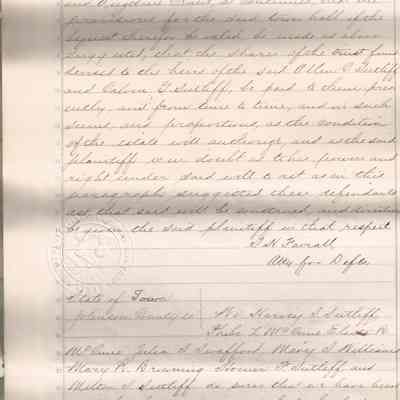 provisions for the said town hall if the
bequest therefor be valid be made as above
suggested, that the shares of the trust fund
devised to the heirs of the said Allen C. Sutliff
and Calvin G. Sutliff, be paid to them pres
ently and from time to time, and in such
sums, and proportions, as the condition
of the estate will authorize, and as the said
plaintiffs are in doubt as to his power and
right under said will to act as in this
paragraph suggested these defendants
ask that said will be construed, and direction
be given the said plaintiff in that respect
Atty for Defts
State of Iowa
Johnson County ss
We Harvey G Sutliff
Phebe L McCune
McCune Julia S Swafford, Mary S Williams
Mary R. Browning Homer F. Sutliff and
Milton S Sutliff do swear that we have been